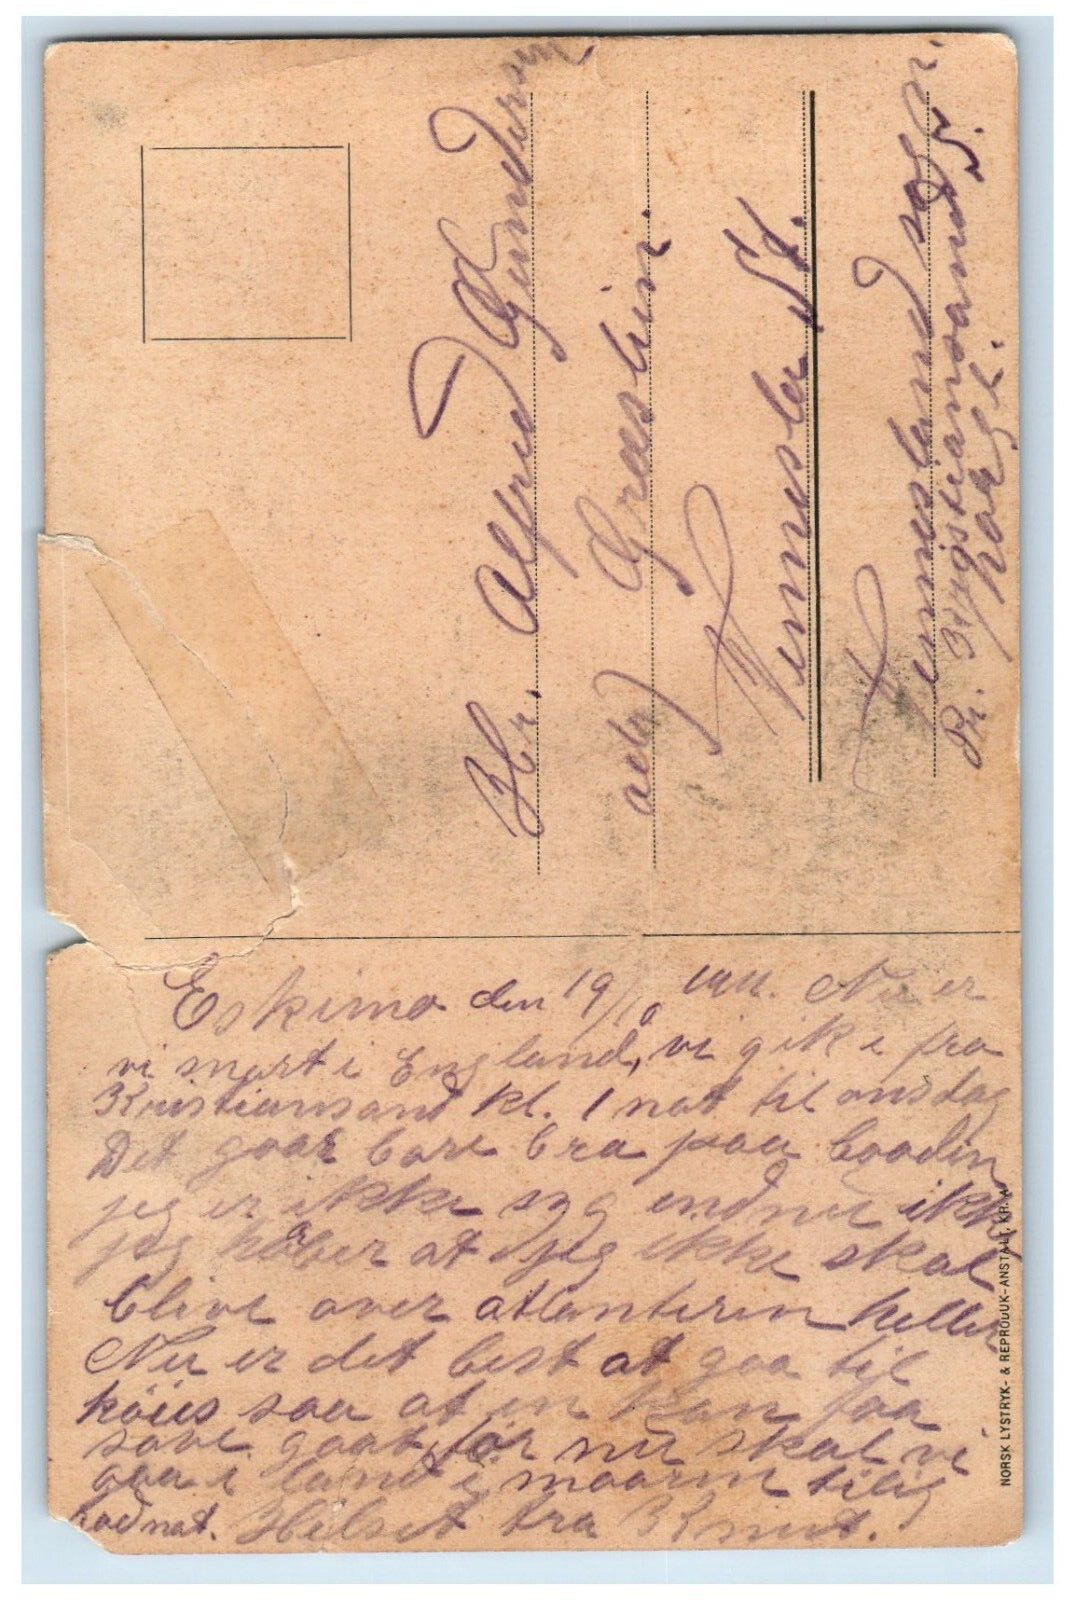 Hr. Alfred Gundersen
adr Græslin
Vennesla St.
Vennesland sogn.
Pr. Kristianssand S.
Norge.
Eskimo den 19/10 1911. Nu er
vi snart i England, vi gik i fra
Kristiansand kl. 1 nat til onsdag
Det gaar bare bra paa baadin
jeg er ikke syg endnu ikke
jeg haaber at jeg ikke skal
blive over atlanterin heller
Nu er det best at gaa til
köies saa at en kan faa
sove gaat, før nu skal vi
gaa i land i maarin tilig
Godnat. Hilset fra Knut.
NORSK LYSTRYK- & REPRODUK-ANSTALT, KR.A